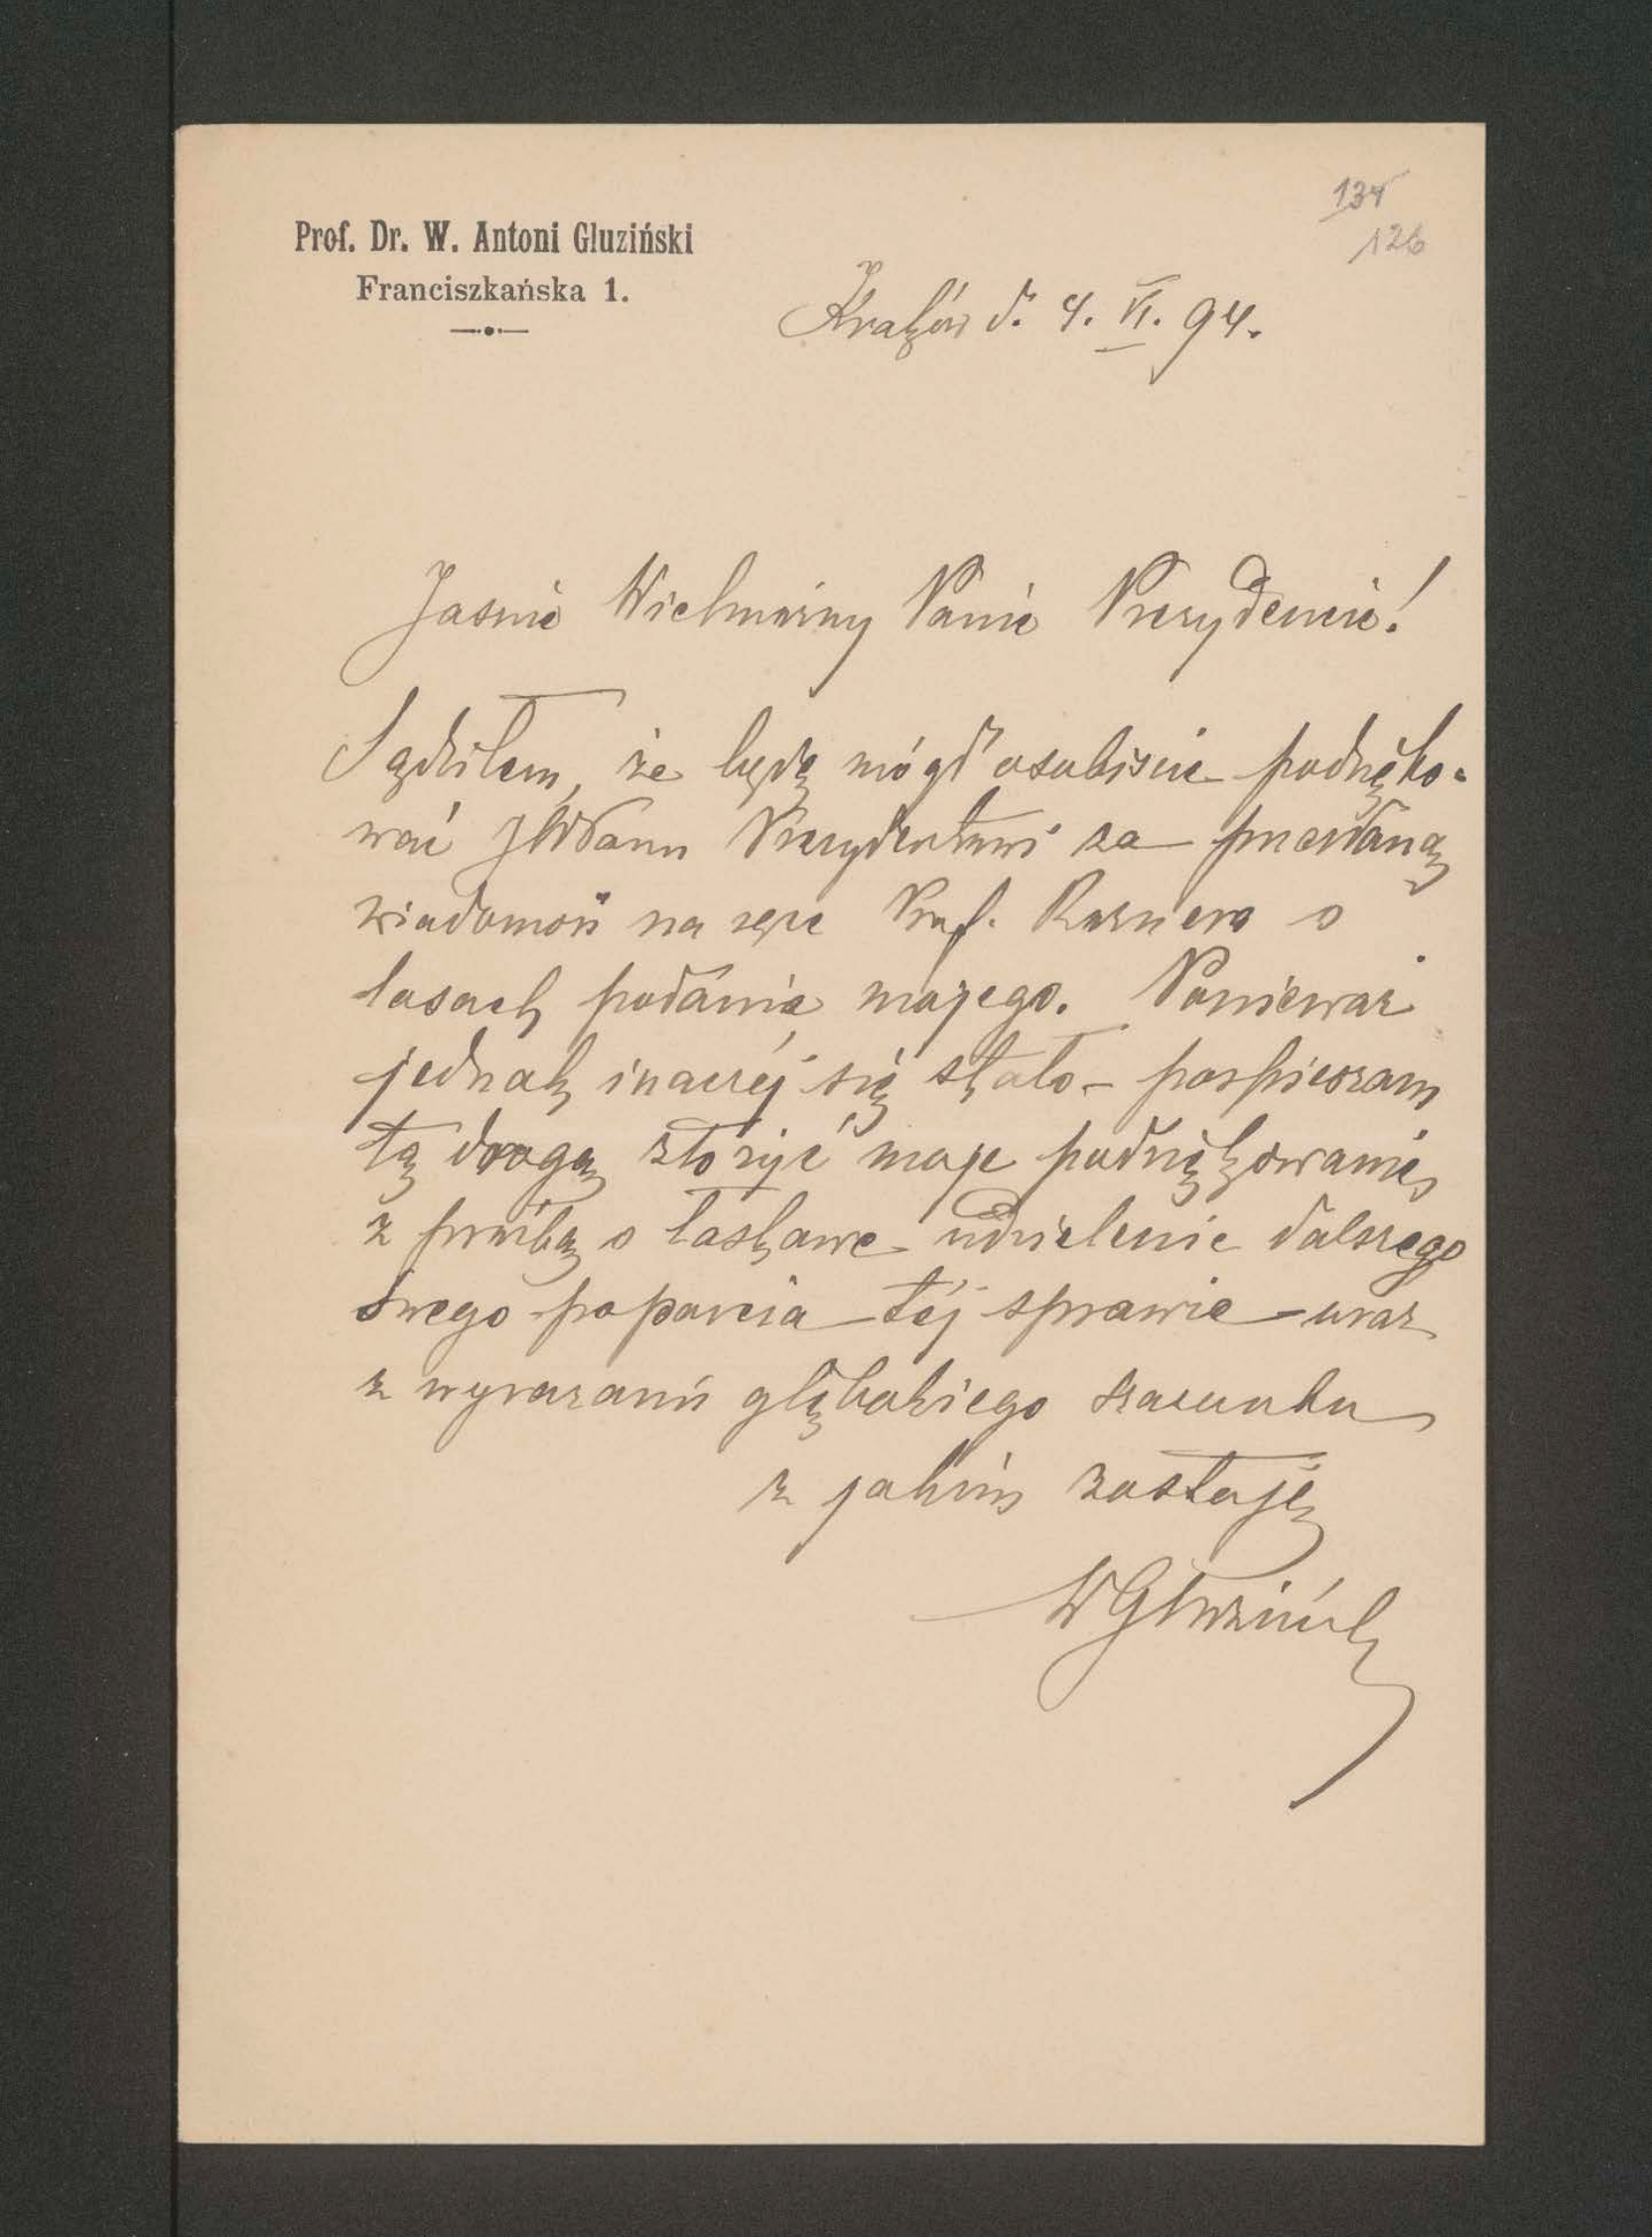 134
126
Prof. Dr. W. Antoni Gluziński
Franciszkańska 1.
Kraków d. 4. VI. 94.
Jaśnie Wielmożny Panie Prezydencie!
Sądziłem, że będę mógł osobiście podzięko-
wać JWPanu Prezydentowi za przesłaną
wiadomość na ręce Prof. Rosnera o
losach podania mojego. Ponieważ
jednak inaczéj się stało – pospieszam
tą drogą złożyć moje podziękowanie
z prośbą o łaskawe udzielenie dalszego
swego poparcia téj sprawie – wraz
z wyrazami głębokiego szacunku
z jakim zostaję
WGluziński